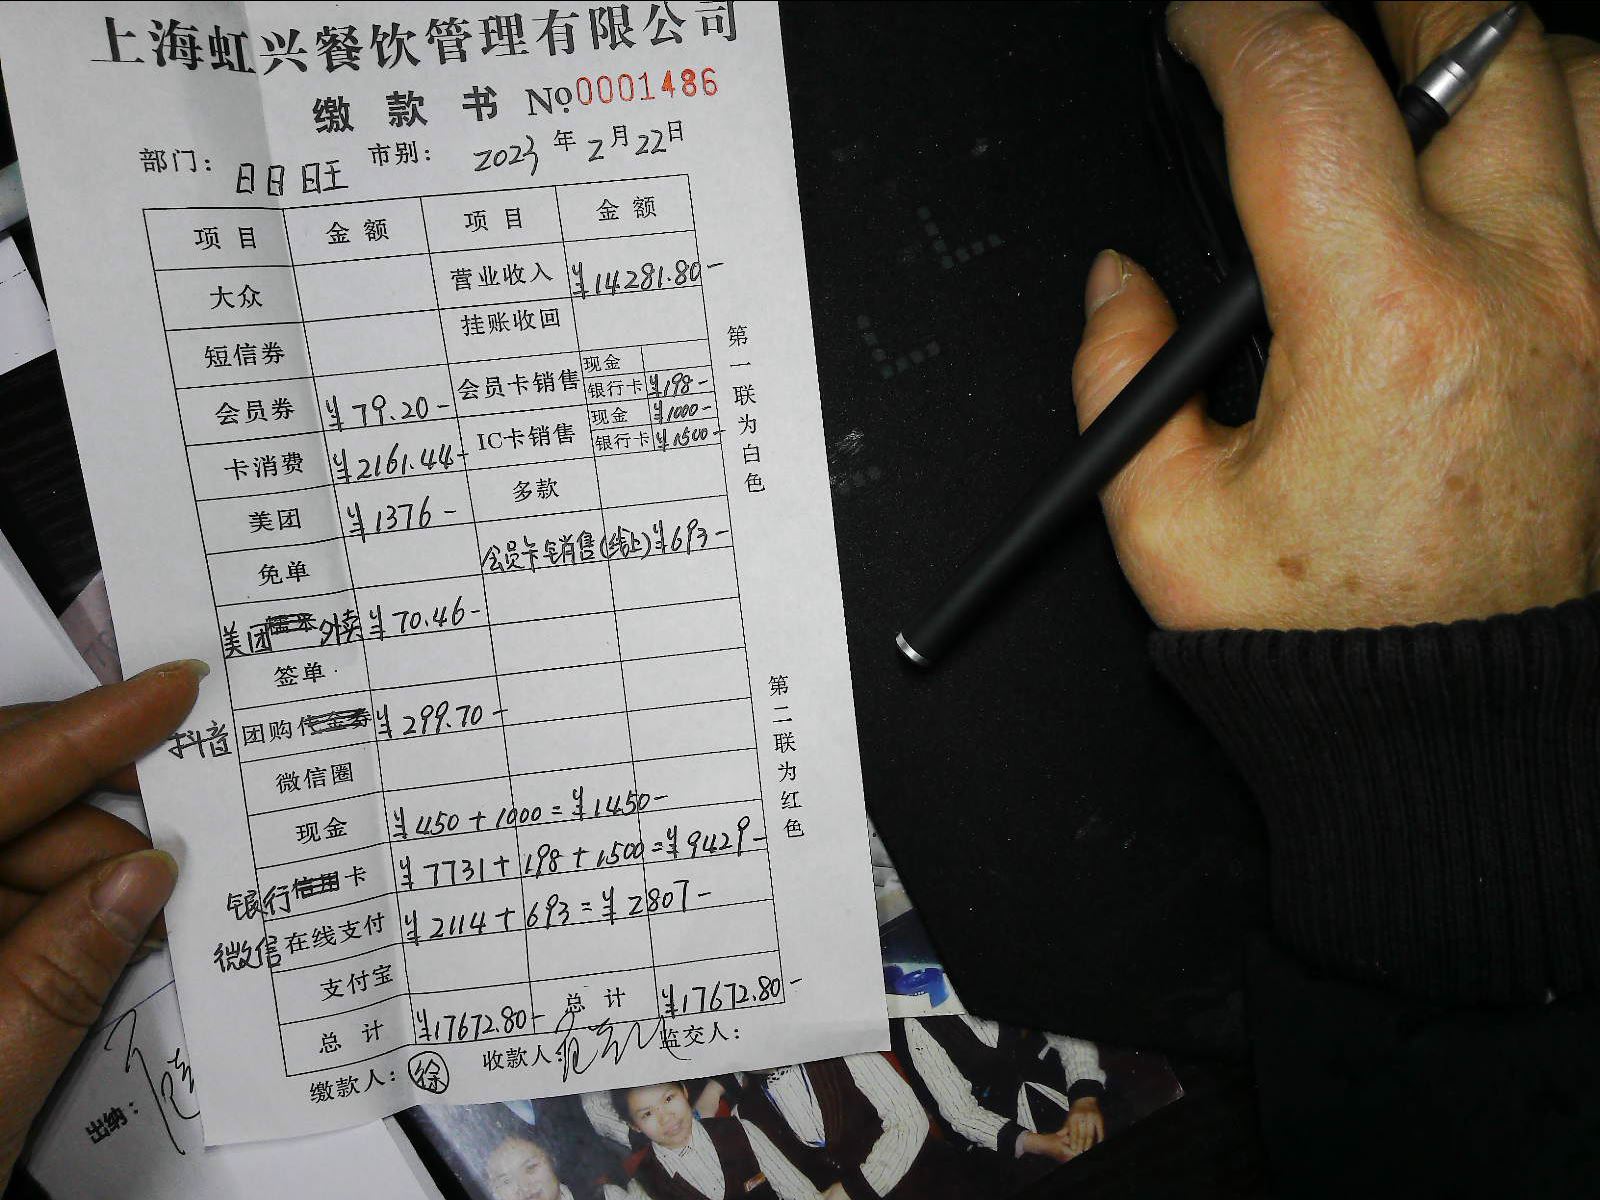 上海虹兴餐饮管理有限公司
缴款书 No 0001486
部门：日日旺 市别： 2023年2月22日
项目 金额 项目 金额
大众 营业收入 ¥14281.80-
短信券 挂账收回
会员券 ¥79.20- 会员卡销售 现金
银行卡 ¥198-
卡消费 ¥2161.44- IC卡销售 现金 ¥1000-
银行卡 ¥1500-
美团 ¥1376- 多款
免单 会员卡销售(线上) ¥693-
美团外卖 ¥70.46-
签单
抖音团购 ¥299.70-
微信圈
现金 ¥450+1000=¥1450-
银行卡 ¥7731+198+1500=¥9429-
微信在线支付 ¥2114+693=¥2807-
支付宝
总计 ¥17672.80- 总计 ¥17672.80-
缴款人：徐 收款人： 监交人：
第一联为白色
第二联为红色
出纳：